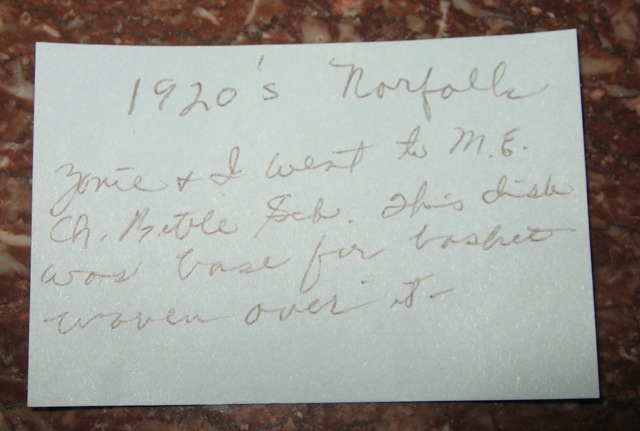 1920's Norfolk
Zonie + I went to M.E.
Ch. Bible Sch. This dish
was base for basket
woven over it -